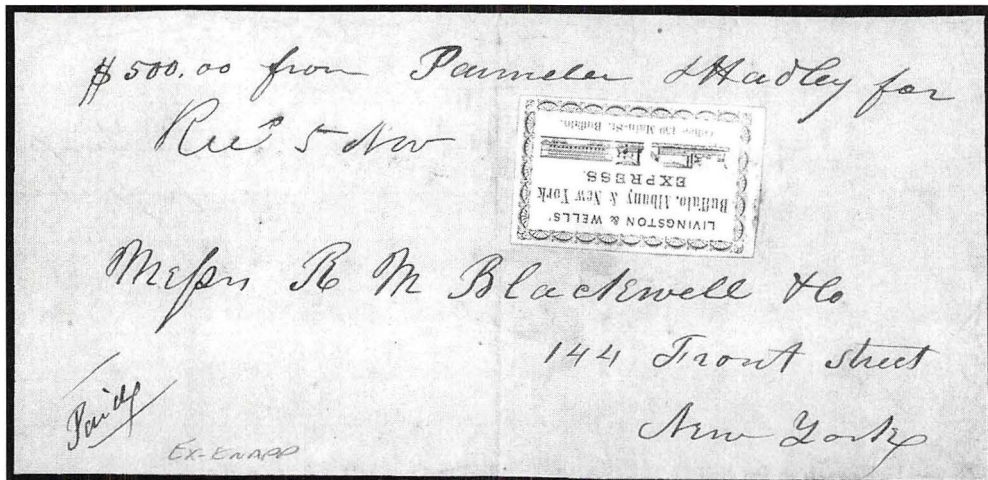 $500.00 from Parmelee & Hadley for
Rec^d. 5 Nov
LIVINGSTON & WELLS'
Buffalo, Albany & New York
EXPRESS.
Office, 130 Main-St. Buffalo.
Messrs R M Blackwell & Co
144 Front street
New York
Paid
EX-KNAPP